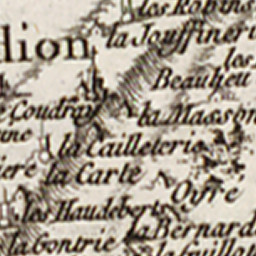 les Robins
la Jouffineri
dion
les
Beaulieu
Coudray
la Masson
la Cailleterie
la Carte
Oyré
les Haudeberts
la Bernard
la Gontrie
la Guillot